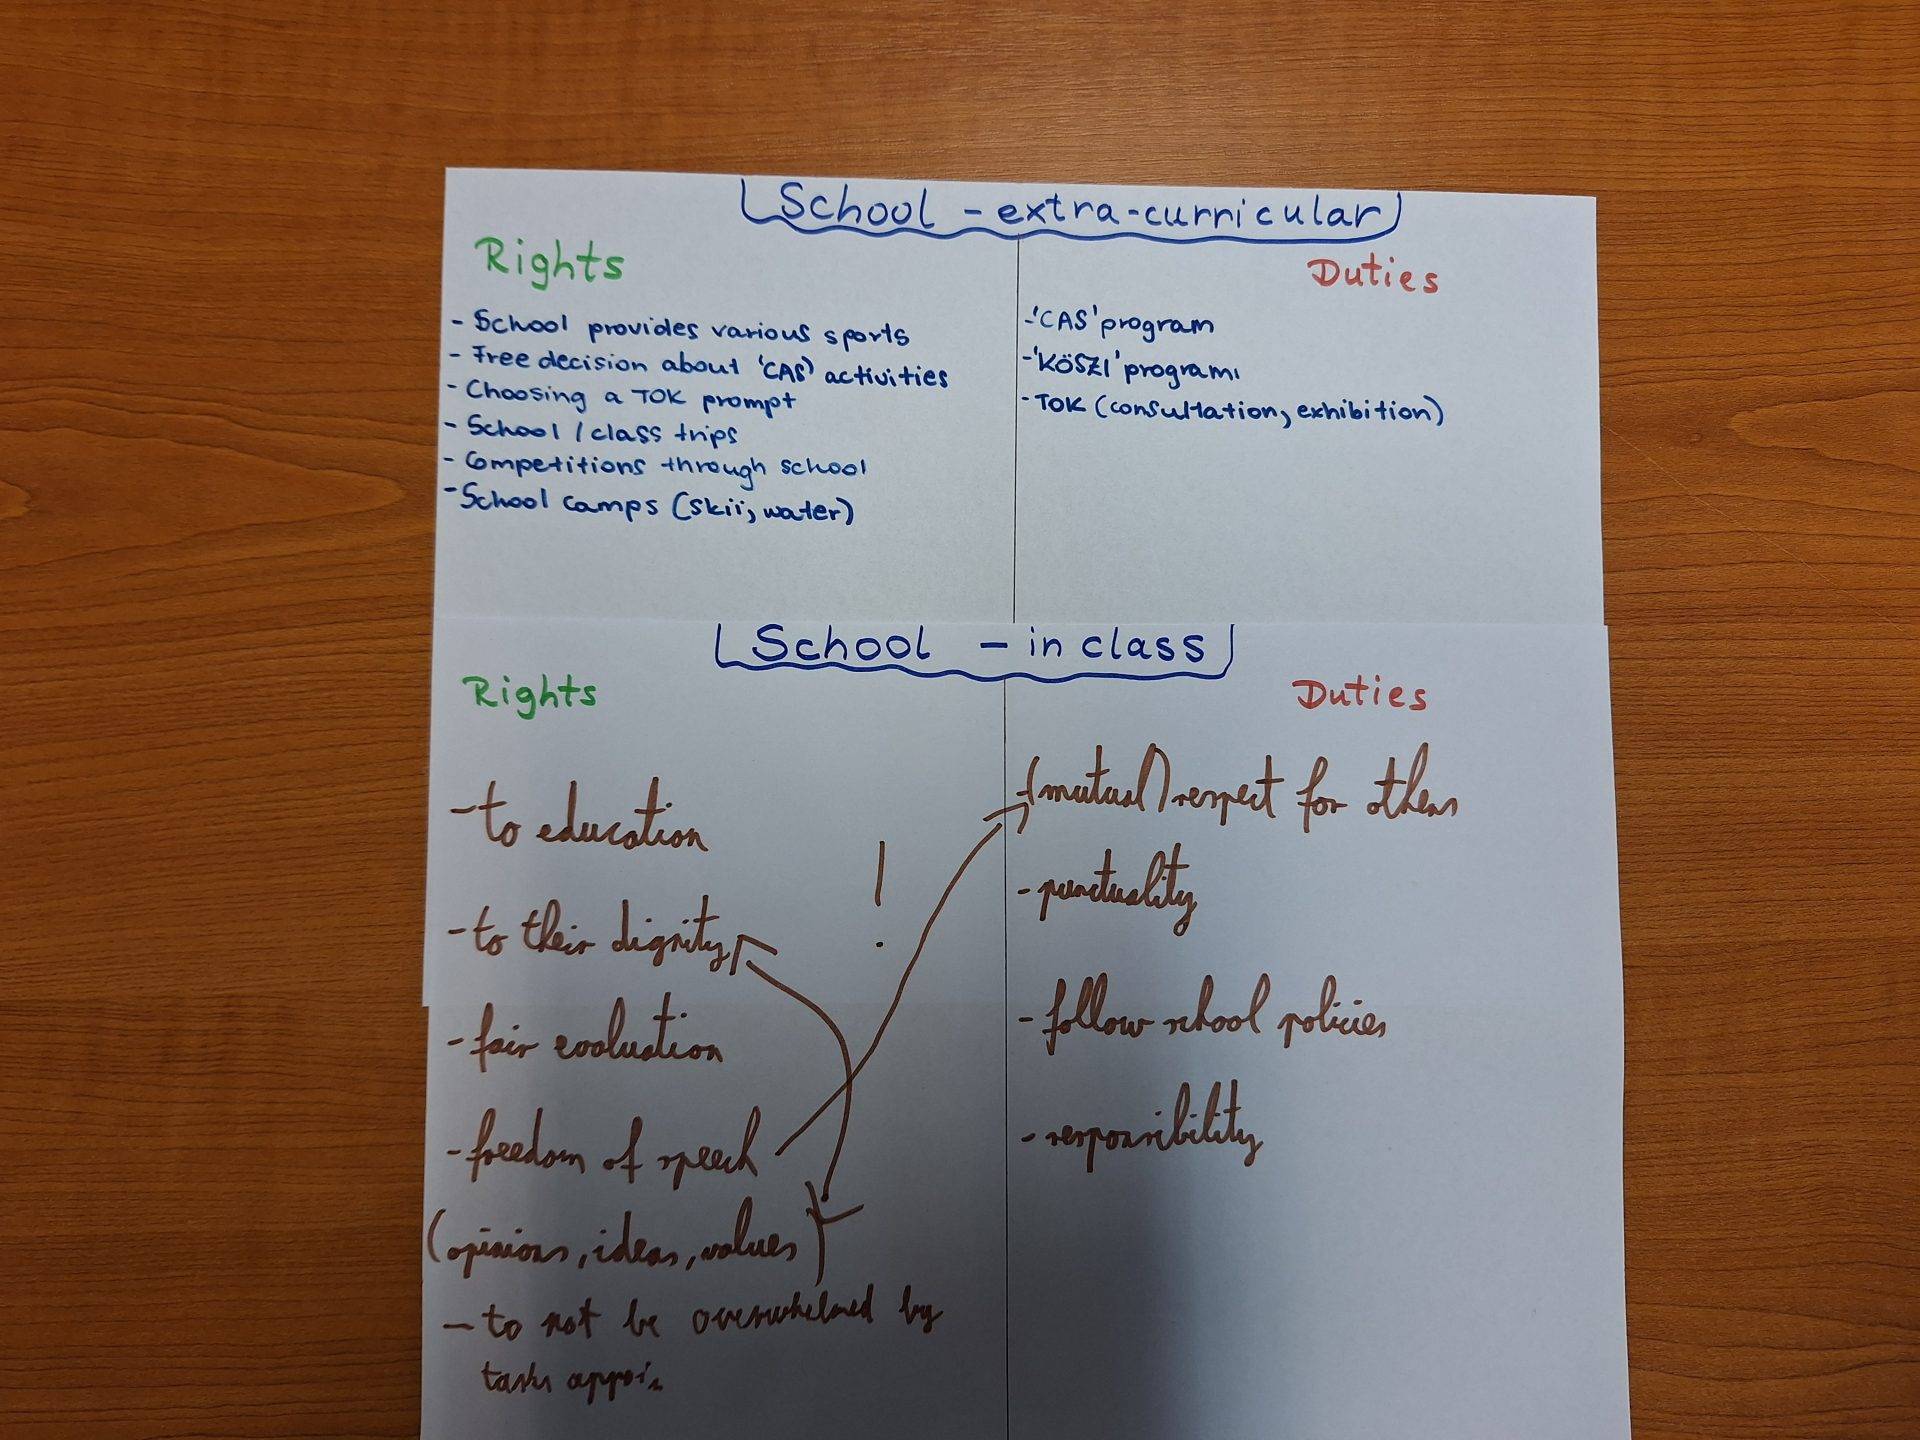 School - extra-curricular
Rights
- School provides various sports
- Free decision about 'CAS' activities
- Choosing a TOK prompt
- School / class trips
- Competitions through school
- School camps (skii, water)
Duties
- 'CAS' program
- 'KÖSZI' program
- TOK (consultation, exhibition)
School - in class
Rights
- to education
- to their dignity
- fair evaluation
- freedom of speech
(opinions, ideas, values)
- to not be overwhelmed by
tasks
!
Duties
- (mutual) respect for others
- punctuality
- follow school policies
- responsibility